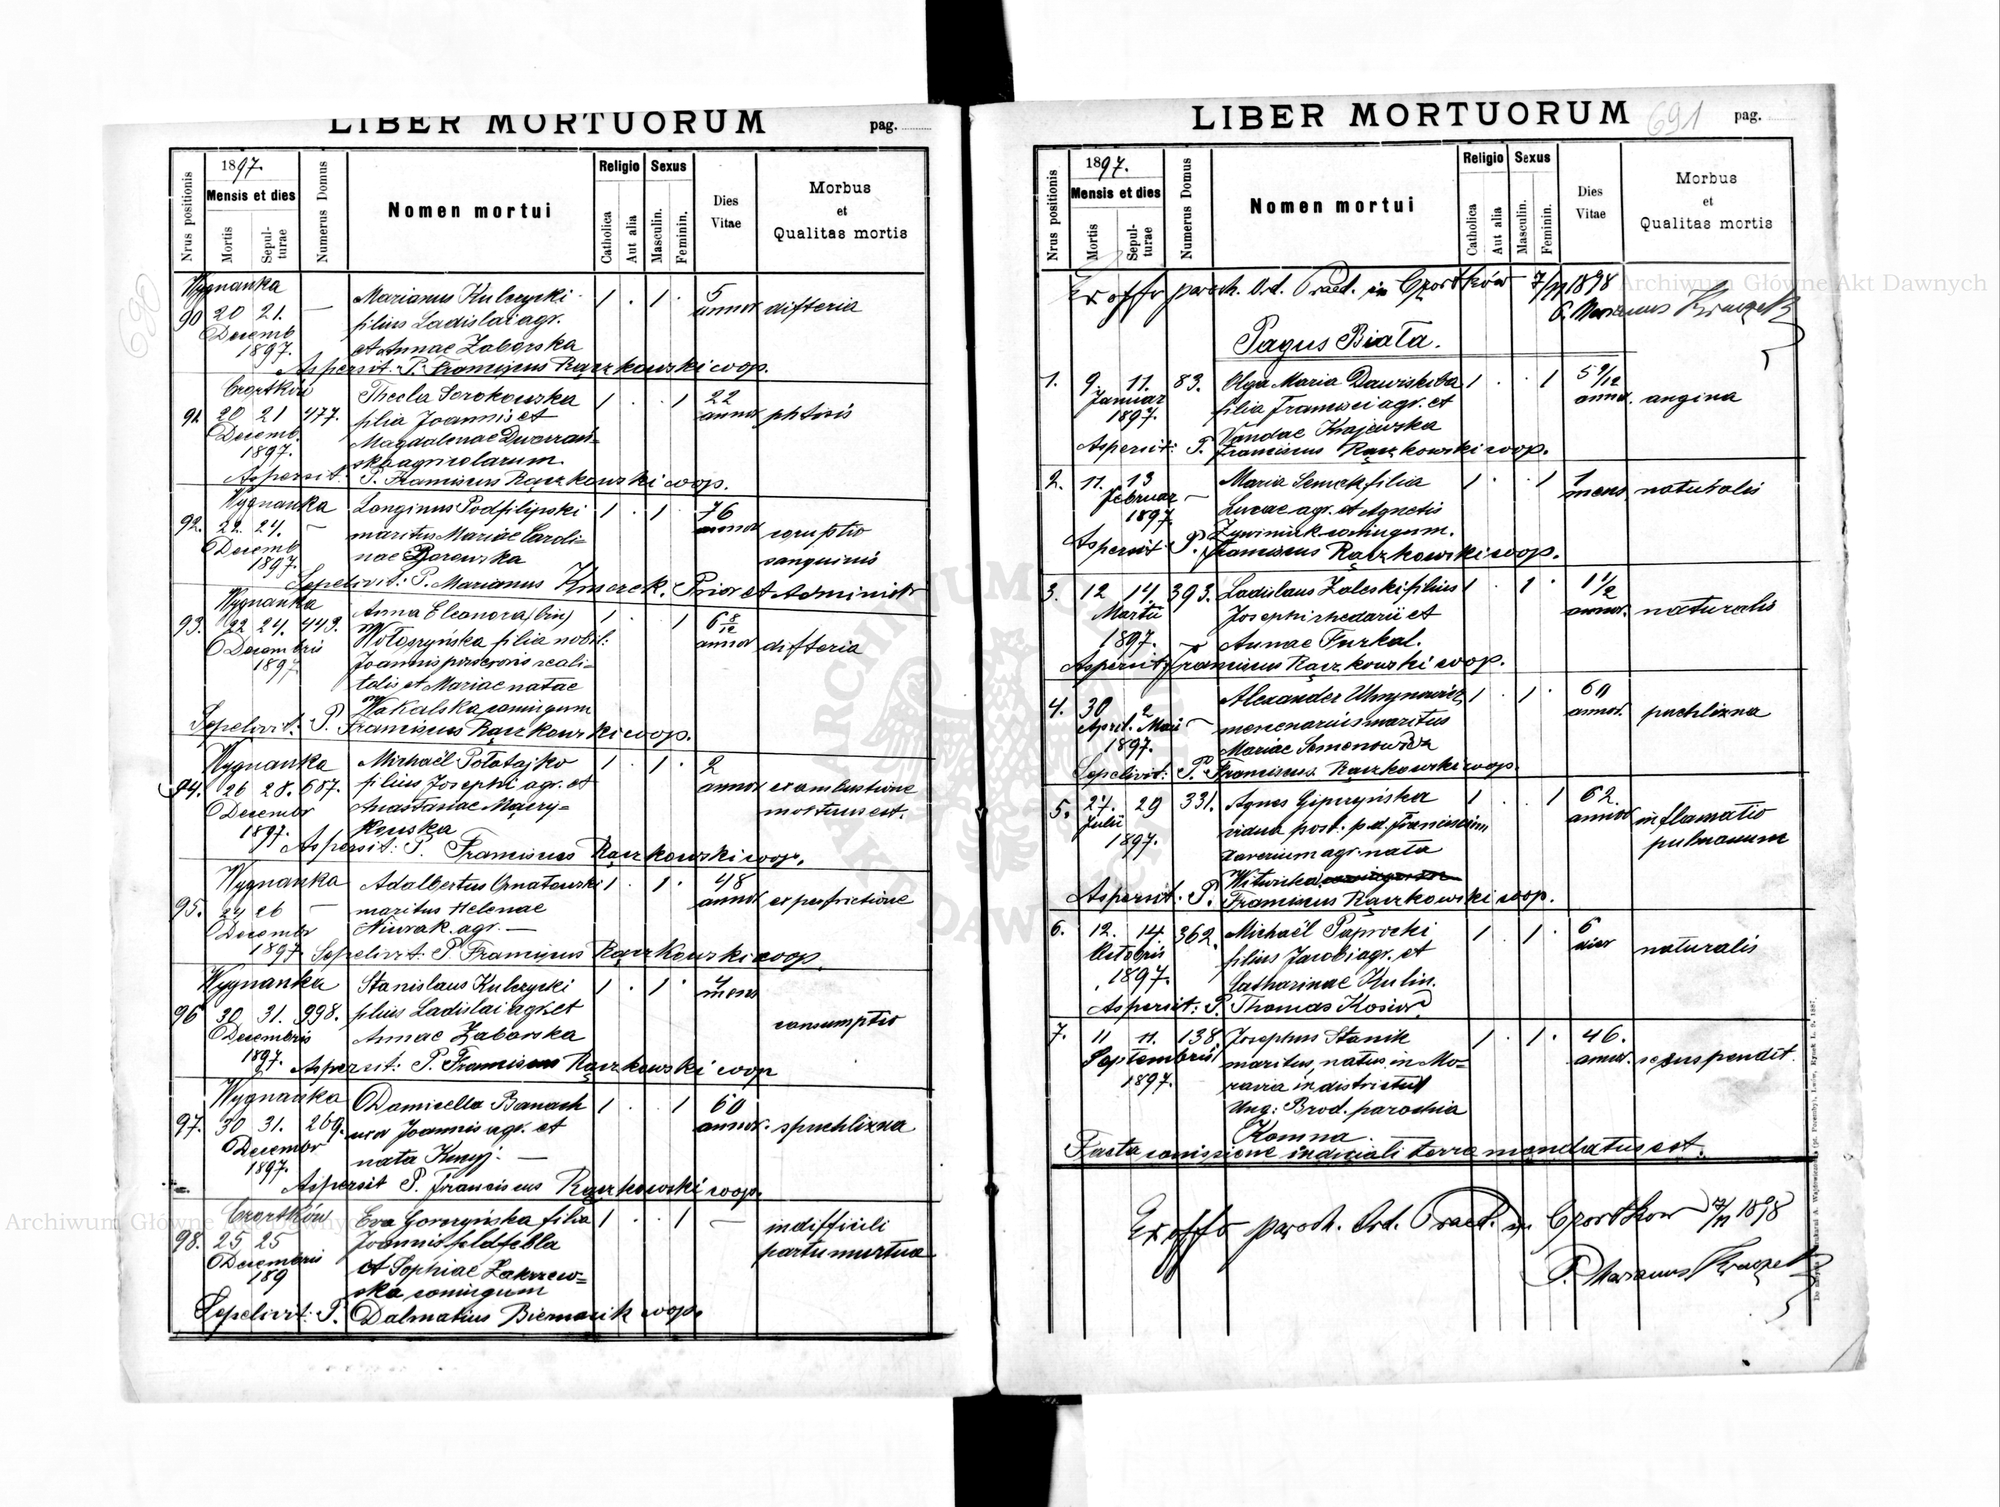 LIBER MORTUORUM
pag.
690
1897.
Nrus positionis
Mensis et dies
Mortis
Sepulturae
Numerus Domus
Nomen mortui
Religio
Catholica
Aut alia
Sexus
Masculin.
Feminin.
Dies Vitae
Morbus
et
Qualitas mortis
Wygnanka
90 20 21. — Marianus Kulczycki 1 . 1 . 5
Decemb filius Ladislai agr. annor difteria
1897. et Annae Zaborska
Aspersit: P. Franciscus Rączkowski coop.
Czortków
91 20 21 477. Thecla Sorokowska 1 . . 1 22
Decemb. filia Joannis et annor phtisis
1897. Magdalenae Dwarań=
ska agricolarum
Aspersit: P. Franciscus Rączkowski coop.
Wygnanka
92. 22. 24. — Longinus Podfilipski 1 . 1 . 76
Decemb maritus Mariae Caroli= annor coruptio
1897. nae Borowska sanguinis
Sepelivit: P. Marianus Prior et Administr
Wygnanka
93. 22 24. 449. Anna Eleonora (bin) 1 . . 1 6 8/12
Decembris Wołoszyńska filia nobil: annor difteria
1897 Joannis possesoris reali=
tatis et Mariae natae
Wakalska coniugum
Sepelivit: P. Franciscus Rączkowski coop.
Wygnanka
94. 26 28. 687. Michaël Połatajko 1 . 1 . 2
Decembr filius Josephi agr. et annor ex ambustione
1897. Anastasiae mortuus est.
Aspersit: P. Franciscus Rączkowski coop.
Wygnanka
95. 24 26 — Adalbertus Ornatowski 1 . 1 . 48
Decembr maritus Helenae annor ex perfrictione
1897 agr. —
Sepelivit: P. Franciscus Rączkowski coop.
Wygnanka
96 30 31. 998. Stanislaus Kulczycki 1 . 1 . mens
Decembris filius Ladislai agr. et consumptio
1897. Annae Zaborska
Aspersit: P. Franciscus Rączkowski coop
Wygnanka
97. 30 31. 269. Domicella Banach 1 . . 1 60
Decembr uxor Joannis agr. et annor. spuchlizna
1897. nata —
Aspersit P. Franciscus Rączkowski coop.
Czortków
98. 25 25 Eva Gorczyńska filia 1 . . 1 — in difficili
Decembris Joannis feldfebla partu mortua
189 et Sophiae Zakrzew=
ska coniugum
Sepelivit: P. Dalmatius Biernacik coop.
LIBER MORTUORUM
691
pag.
1897.
Nrus positionis
Mensis et dies
Mortis
Sepulturae
Numerus Domus
Nomen mortui
Religio
Catholica
Aut alia
Sexus
Masculin.
Feminin.
Dies Vitae
Morbus
et
Qualitas mortis
Ex offo paroch. Ord. Praed. in Czortków 7/VI 1898
P. Marianus
Pagus Biała.
1. 9 11. 83. Olga Maria 1 . . 1 5 9/12
Januar filia Francisci agr. et annor. angina
1897. Vandae Krajewska
Aspersit: P. Franciscus Rączkowski coop.
2. 11. 13 — Maria filia 1 . . 1 1
Februar Lucae agr. et Agnetis mens naturalis
1897. coniugum.
Aspersit: P. Franciscus Rączkowski coop.
3. 12 14 393. Ladislaus Zaleski filius 1 . 1 . 1 1/2
Martii Josephi rhedarii et annor. naturalis
1897. Annae Furkal.
Aspersit: Franciscus Rączkowski coop.
4. 30 2 — Alexander 1 . 1 . 60
April. Maii mercenarius maritus annor. puchlizna
1897. Mariae Semenowicz
Sepelivit: P. Franciscus Rączkowski coop.
5. 27. 29 331. Agnes Gipczyńska 1 . . 1 62.
Julii vidua post. p.d. Franciscum annor inflamatio
1897. Xaverium agr. nata pulmonum
Witwicka
Aspersit. P. Franciscus Rączkowski coop.
6. 12. 14. 362. Michaël Paprocki 1 . 1 . 6
Octobris filius Jacobi agr. et dier naturalis
1897. Catharinae Kulin.
Aspersit: P. Thomas Kosior
7. 11 11. 138. Josephus Stanik 1 . 1 . 46.
Septembris maritus, natus in Mo= annor. se suspendit.
1897. ravia in districtu
Ung: Brod. parochia
Komna.
Facta comissione iudiciali terra mandatus est.
Ex offo paroch. Ord. Praed. in Czortkow 7/VI 1898
P. Marianus
Archiwum Główne Akt Dawnych
Archiwum Główne Akt Dawnych